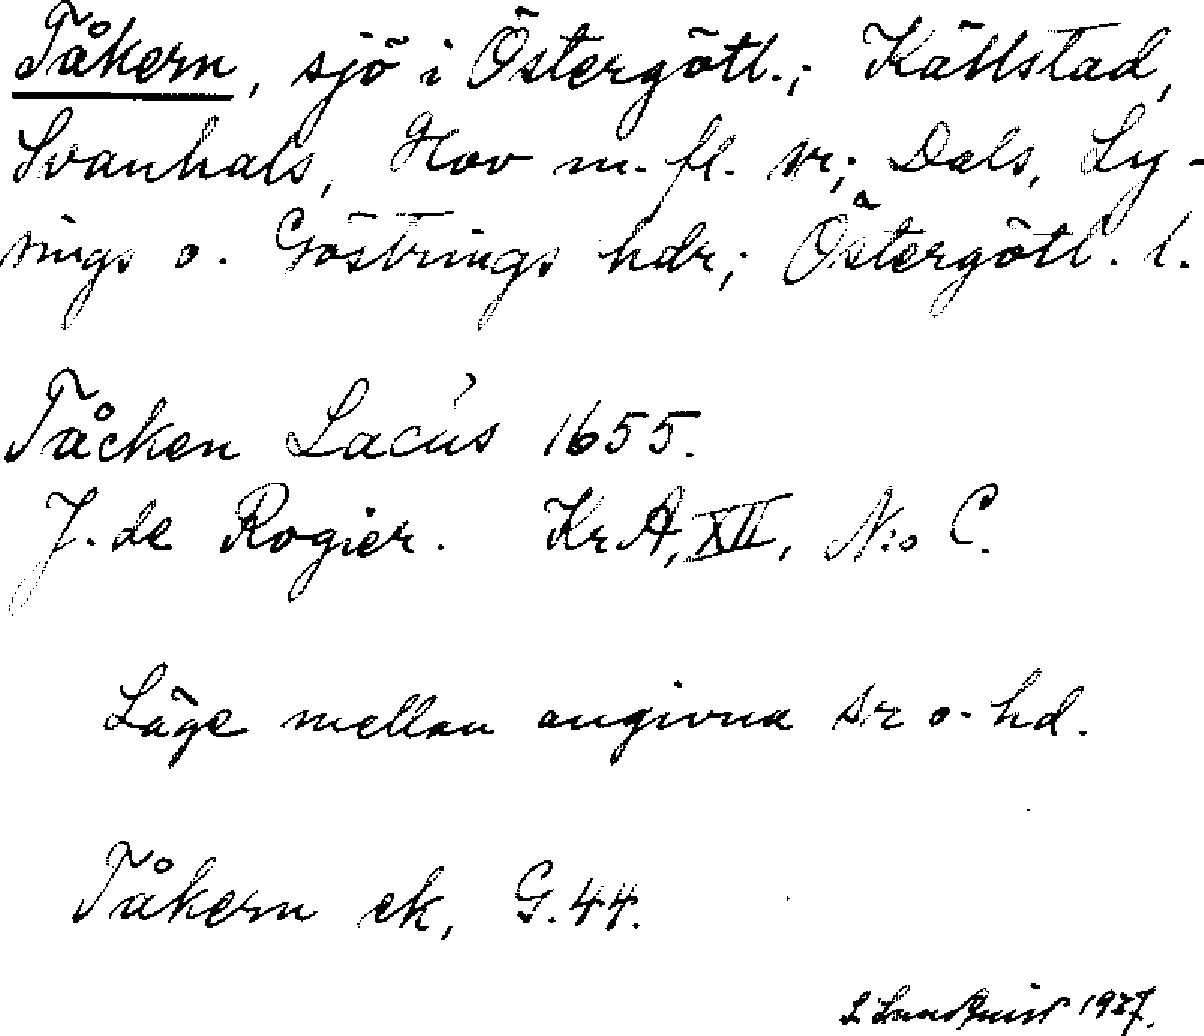 Tåkern, sjö i Östergötl.; Källstad,
Svanhals, Hov m. fl. sr; Dals, Ly-
sings o. Göstrings hdr; Östergötl. l.
Tåcken Lacus 1655.
J. de Rogier. KrA, XII, N:o C.
Läge mellan angivna sr o. hd.
Tåkern ek, G. 44.
S. Lundquist 1927.